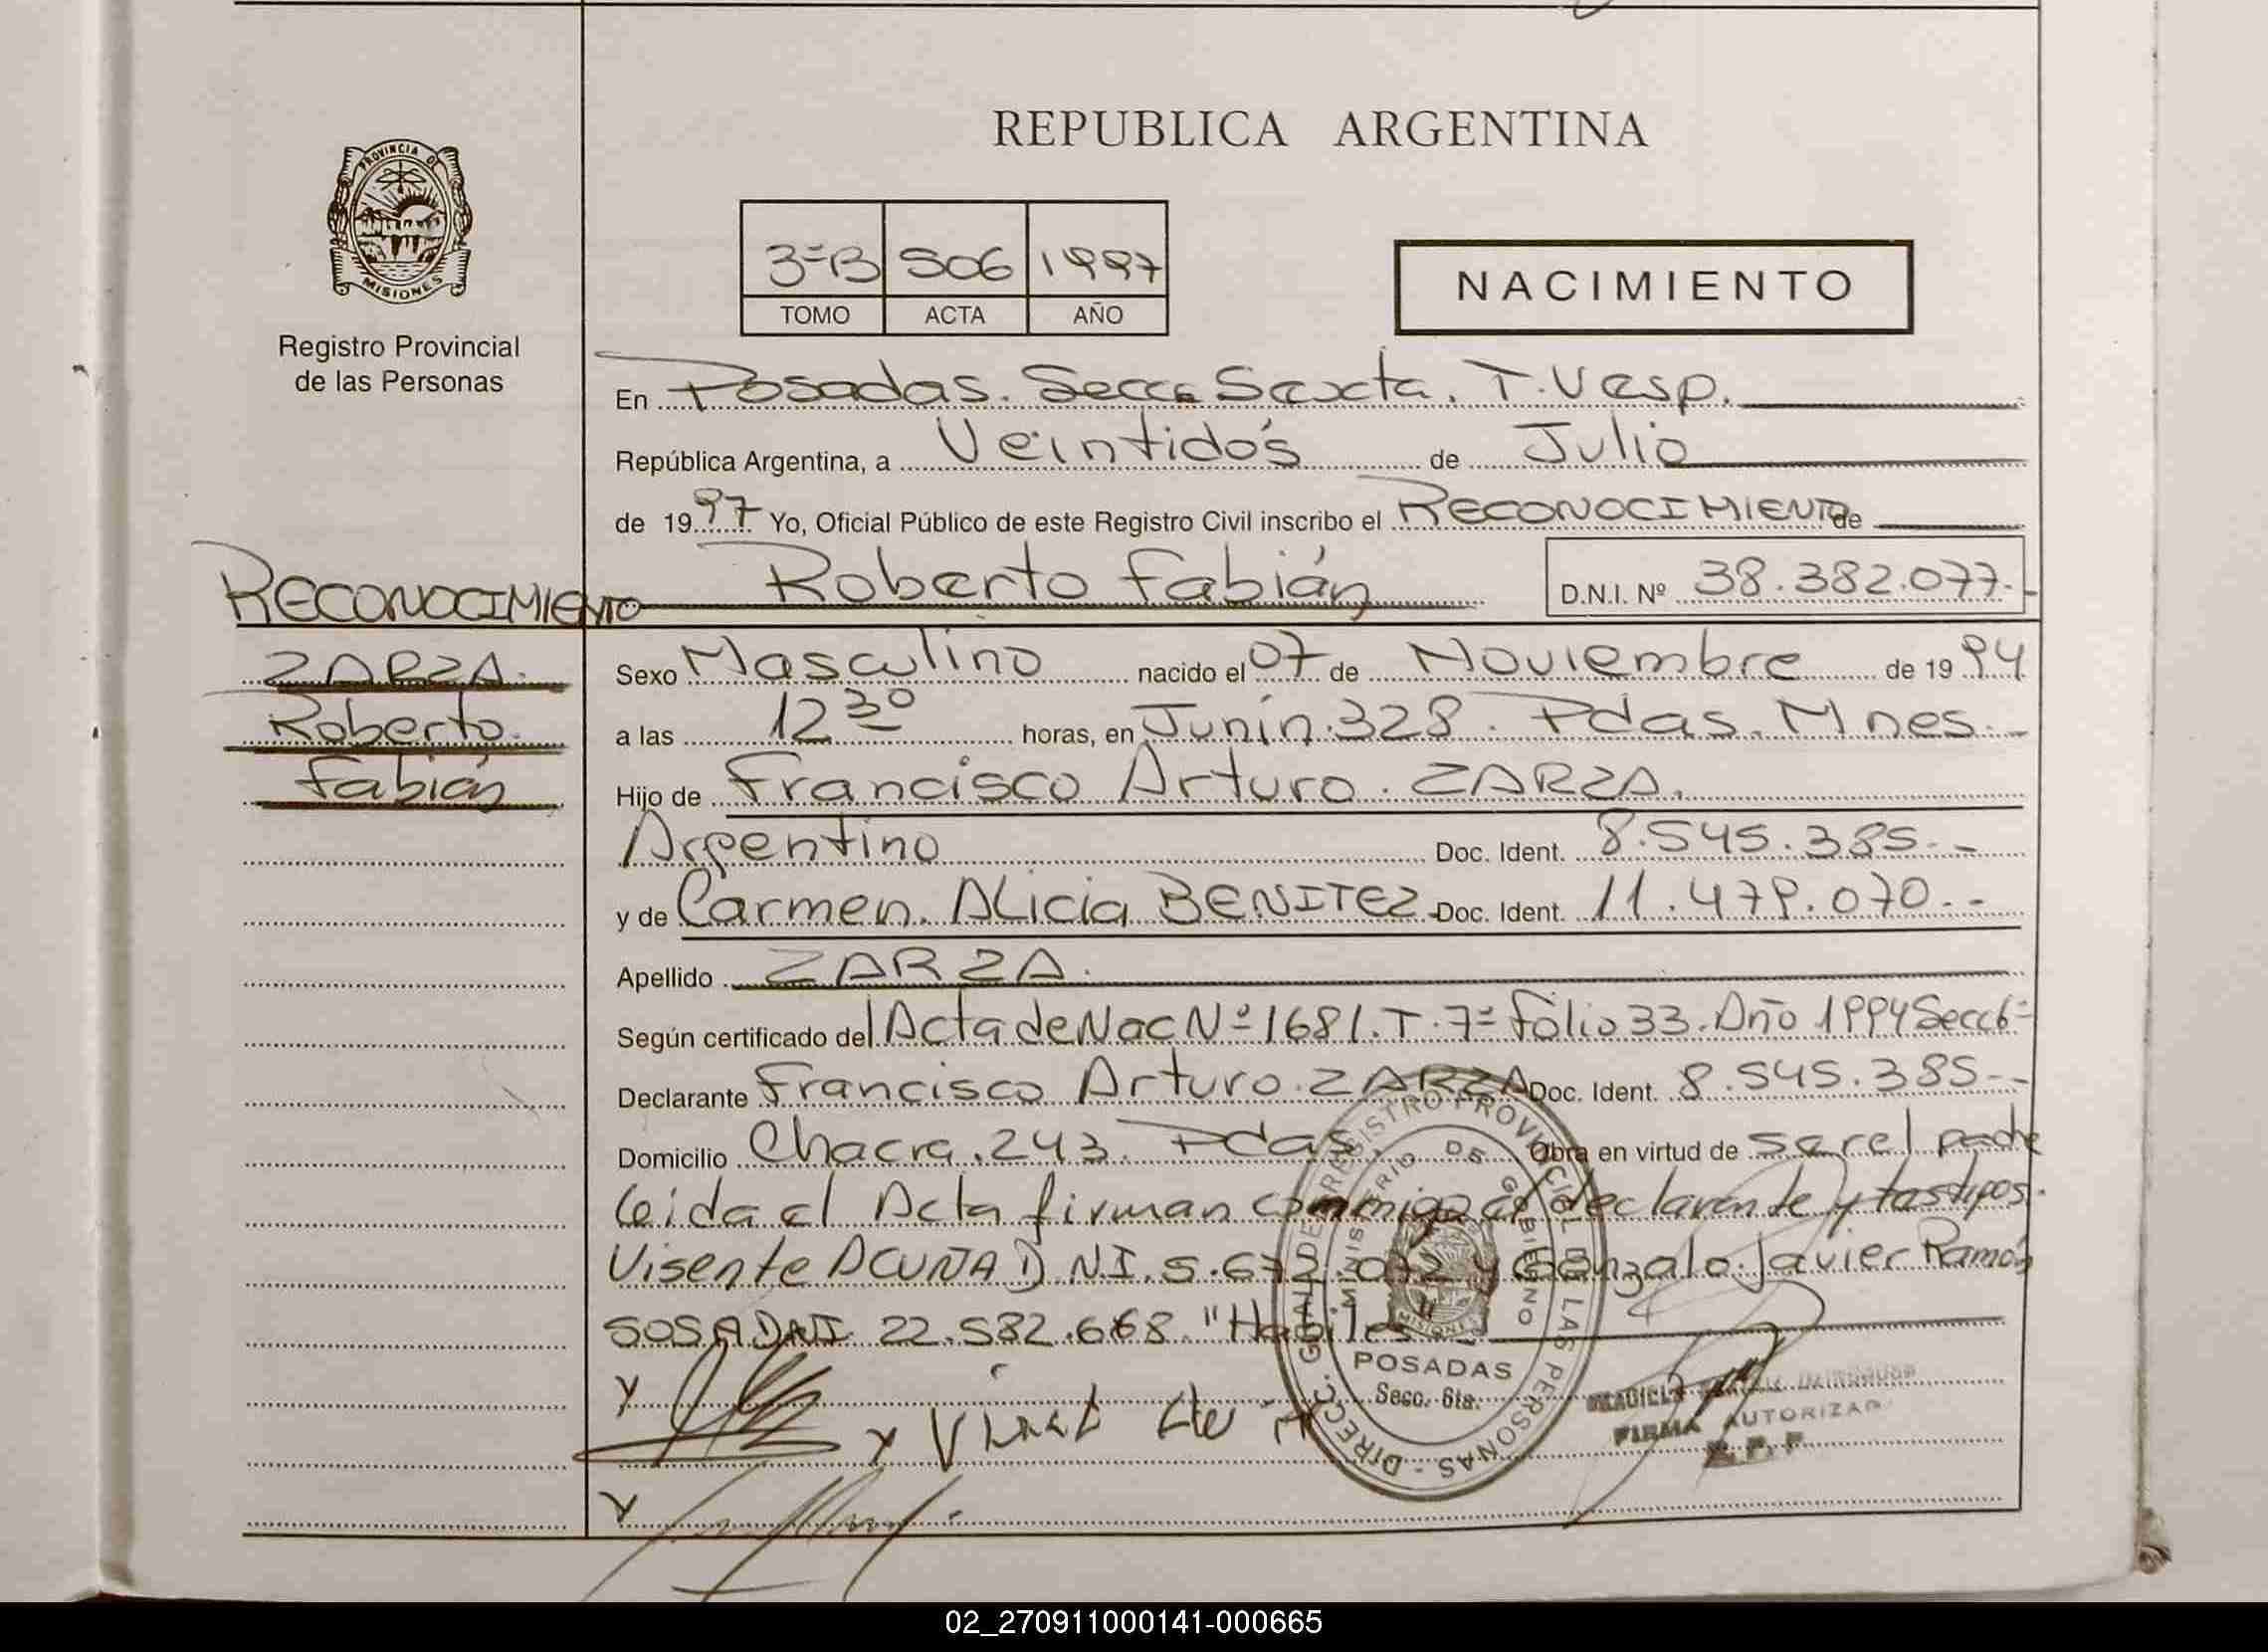 REPUBLICA ARGENTINA
PROVINCIA DE
MISIONES
Registro Provincial
de las Personas
3ª B 506 1997
TOMO ACTA AÑO
NACIMIENTO
En Posadas. Secc. Sexta. T. Vesp.
República Argentina, a Veintidós de Julio
de 1997 Yo, Oficial Público de este Registro Civil inscribo el RECONOCIMIENTO de
Roberto Fabián D.N.I. Nº 38.382.077.-
RECONOCIMIENTO
ZARZA.
Roberto.
Fabián
Sexo Masculino nacido el 07 de Noviembre de 1994
a las 12 30 horas, en Junín. 328. Pdas. Mnes.-
Hijo de Francisco Arturo. ZARZA.
Argentino Doc. Ident. 8.545.385.-
y de Carmen. Alicia BENITEZ Doc. Ident. 11.479.070.-
Apellido ZARZA.
Según certificado del Acta de Nac Nº 1681. T. 7º Folio 33. Año 1994 Secc 6ª
Declarante Francisco Arturo. ZARZA Doc. Ident. 8.545.385.-
Domicilio Chacra. 243. Pdas. Obra en virtud de ser el padre
Leida el Acta firman conmigo el declarante y testigos.
Visente ACUÑA D.N.I. 5.672.072 y Gonzalo Javier Ramón
SOSA DNI 22.582.668 "Habiles"
DIRECC. GRAL. DEL REGISTRO PROVINCIAL DE LAS PERSONAS
MINISTERIO DE GOBIERNO
MISIONES
POSADAS
Secc. 6ta.
FIRMA AUTORIZAD
02_270911000141-000665